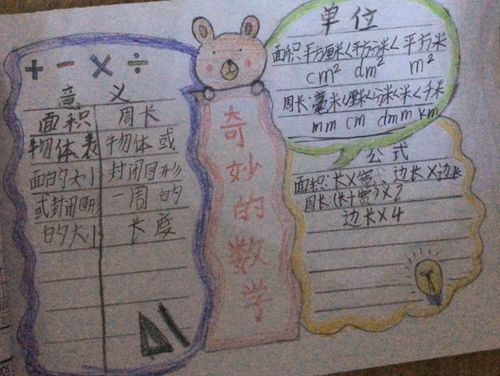 + - × ÷
意 义
面积 周长
物体表 物体或
面的大小 封闭图形
或封闭图形 一周的
的大小 长度
奇妙的数学
单位
面积:平方厘米<平方分米<平方米
cm² dm² m²
周长:毫米<厘米<分米<米<千米
mm cm dm m km
公式
面积:长×宽 边长×边长
周长:(长+宽)×2
边长×4